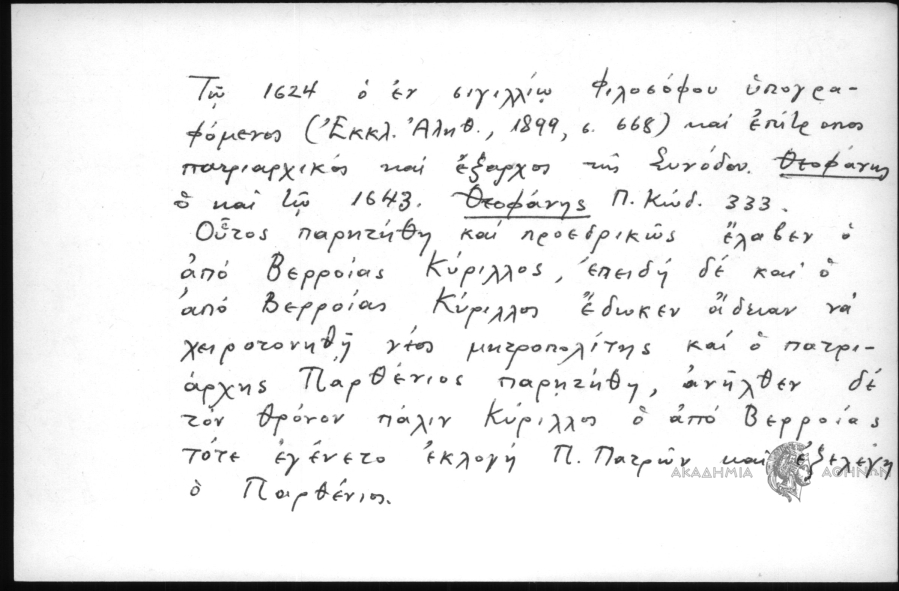 Τῷ 1624 ὁ ἐν σιγιλλίῳ Φιλοσόφου ὑπογρα-
φόμενος (Ἐκκλ. Ἀληθ., 1899, σ. 668) καί ἐπίτροπος
πατριαρχικός καί ἔξαρχος τῆς Συνόδου. Θεοφάνης
ὁ καί τῷ 1643. Θεοφάνης Π. Κώδ. 333.
Οὗτος παρητήθη καί προεδρικῶς ἔλαβεν ὁ
ἀπό Βερροίας Κύριλλος, ἐπειδή δέ καί ὁ
ἀπό Βερροίας Κύριλλος ἔδωκεν ἄδειαν νά
χειροτονηθῇ νέος μητροπολίτης καί ὁ πατρι-
άρχης Παρθένιος παρητήθη, ἀνῆλθεν δέ
τόν θρόνον πάλιν Κύριλλος ὁ ἀπό Βερροίας
τότε ἐγένετο ἐκλογή Π. Πατρῶν καί ἐξελέγη
ὁ Παρθένιος.
ΑΚΑΔΗΜΙΑ ΑΘΗΝΩΝ